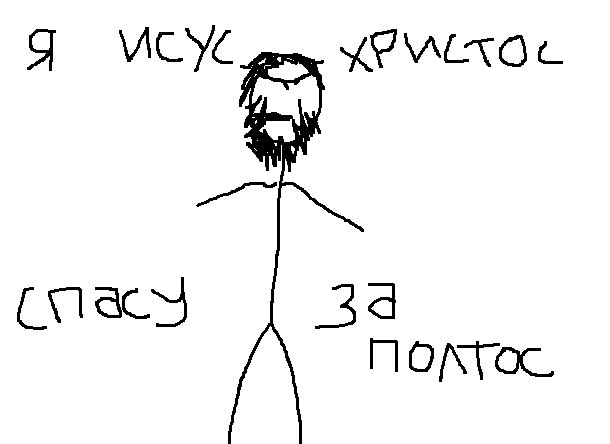 я исус христос
спасу за
полтос